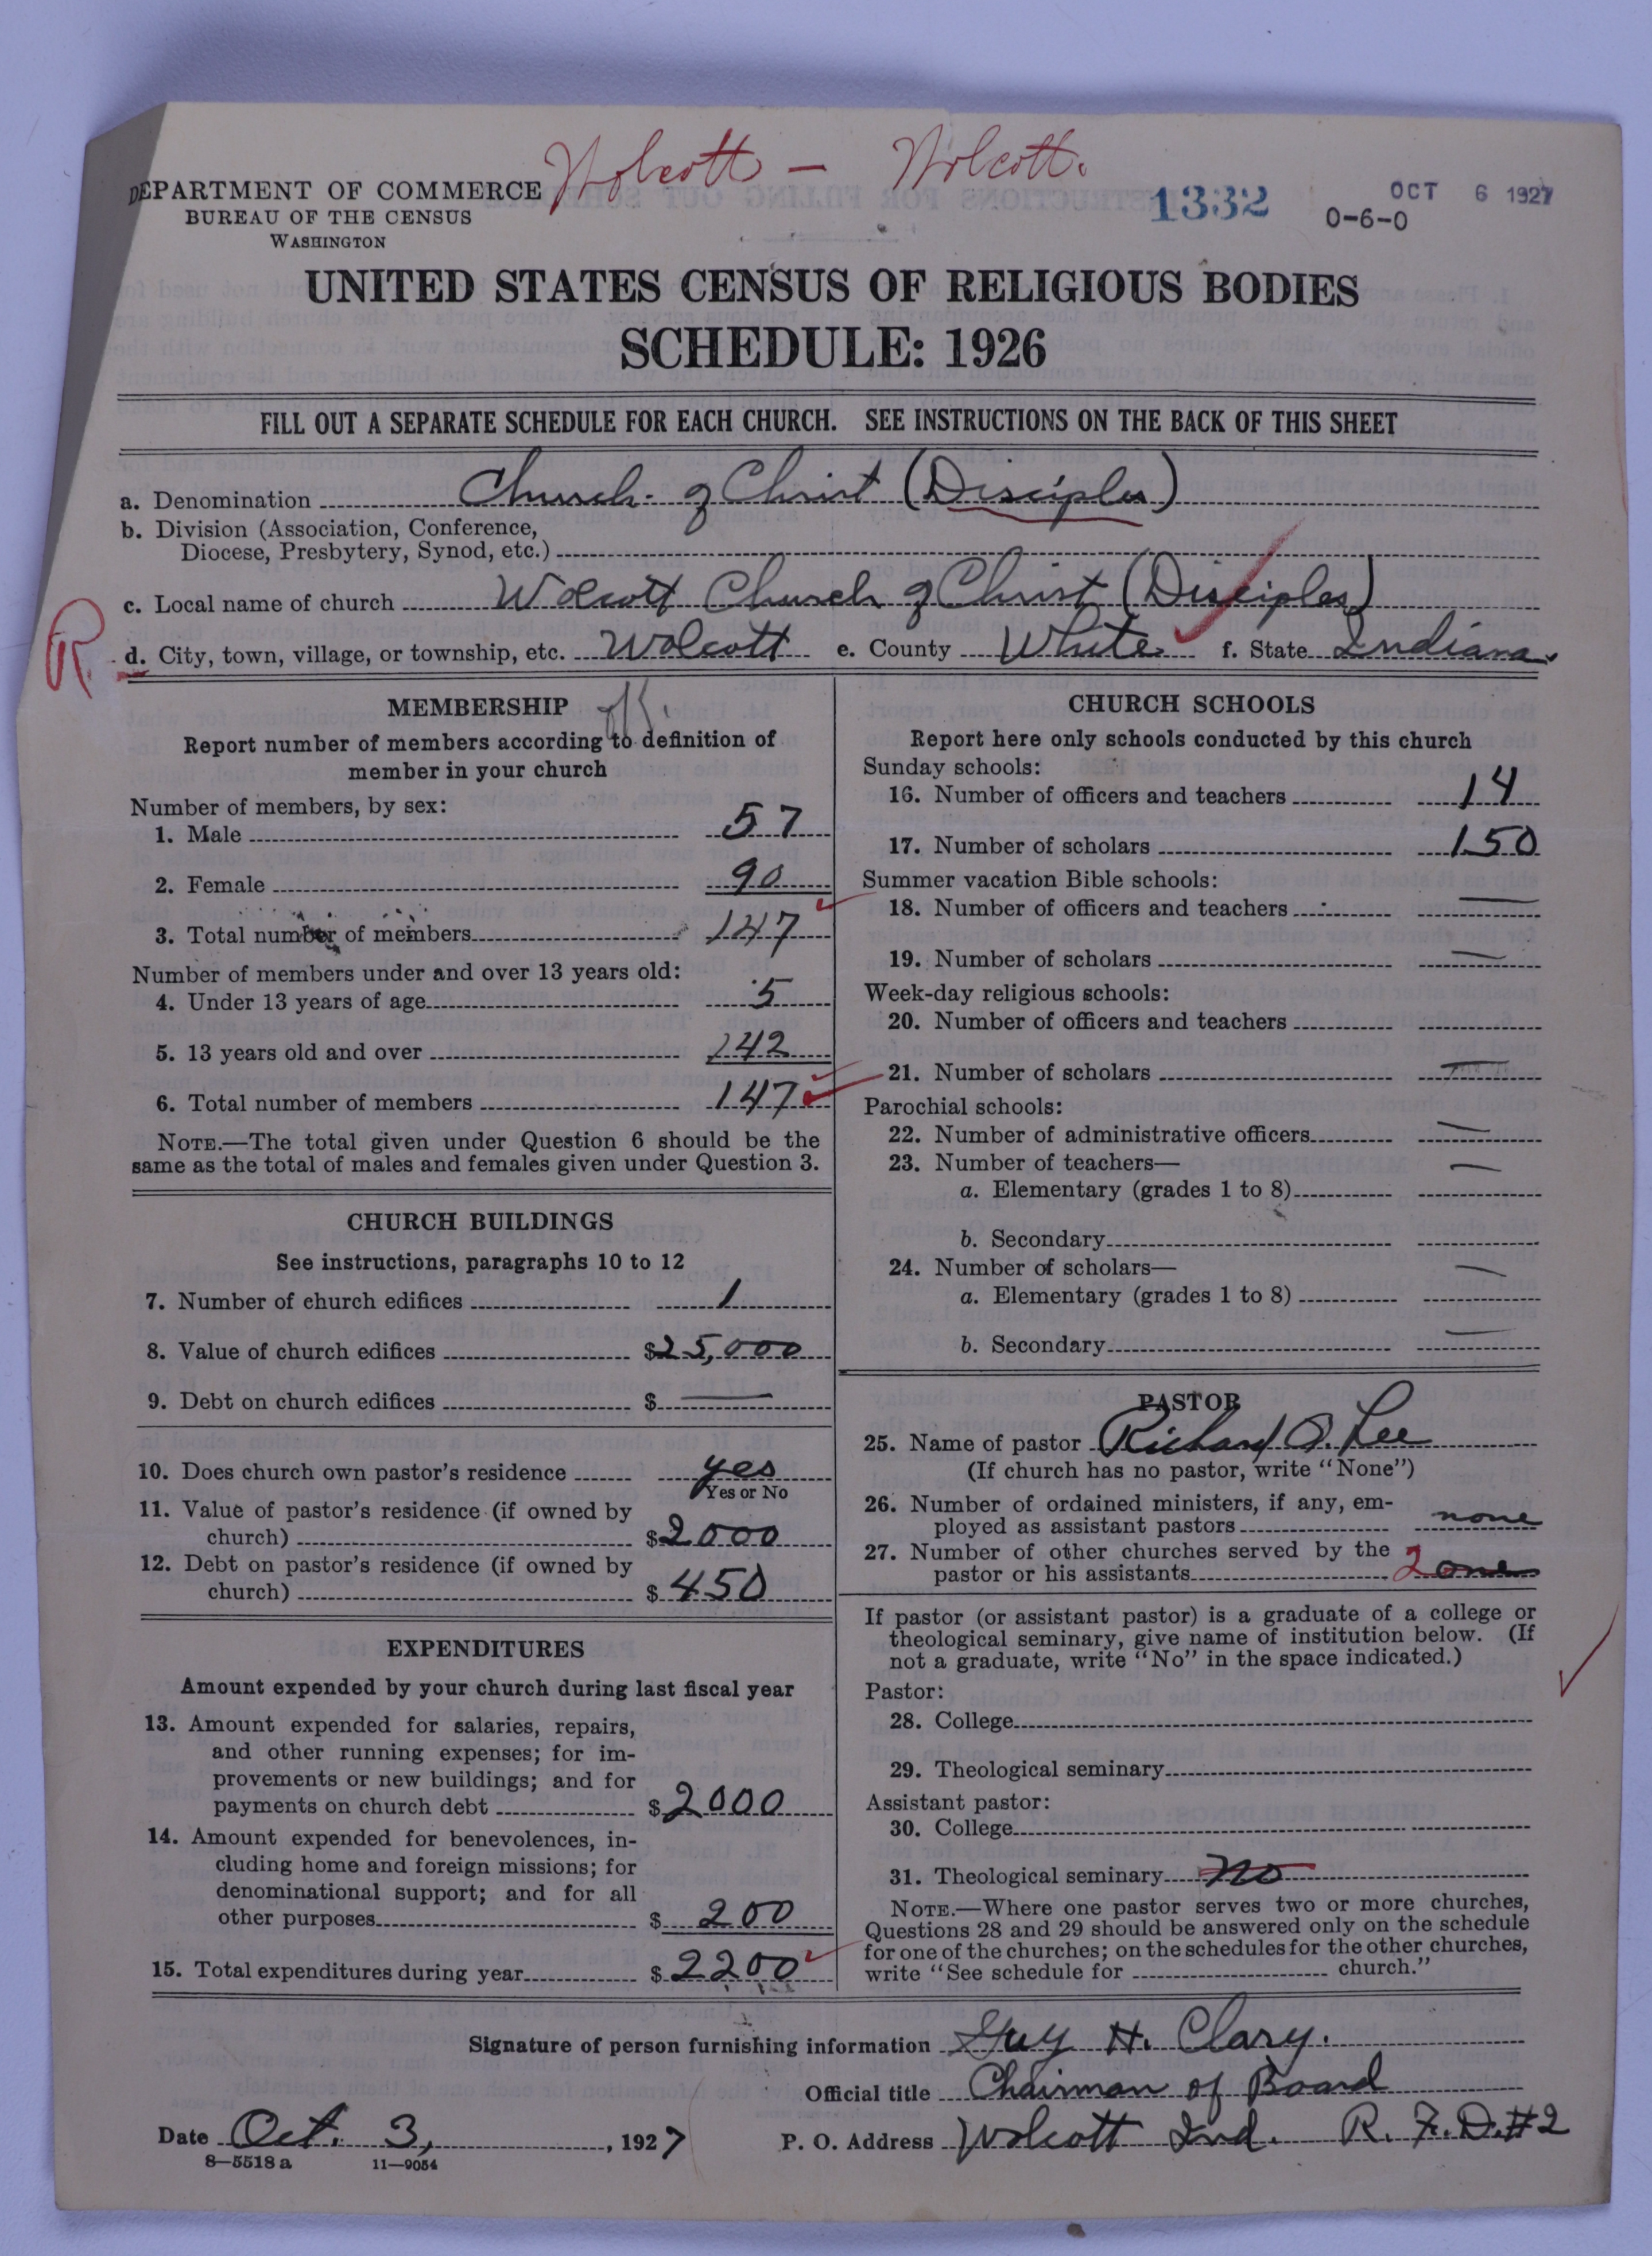 Wolcott – Wolcott.
DEPARTMENT OF COMMERCE
BUREAU OF THE CENSUS
WASHINGTON
1332
OCT 6 1927
0-6-0
UNITED STATES CENSUS OF RELIGIOUS BODIES
SCHEDULE: 1926
FILL OUT A SEPARATE SCHEDULE FOR EACH CHURCH. SEE INSTRUCTIONS ON THE BACK OF THIS SHEET
a. Denomination Church of Christ (Disciples)
b. Division (Association, Conference,
Diocese, Presbytery, Synod, etc.)
c. Local name of church Wolcott Church of Christ (Disciples)
R
d. City, town, village, or township, etc. Wolcott e. County White f. State Indiana.
MEMBERSHIP
Report number of members according to definition of
member in your church
Number of members, by sex:
1. Male 57
2. Female 90
3. Total number of members 147
Number of members under and over 13 years old:
4. Under 13 years of age 5
5. 13 years old and over 142
6. Total number of members 147
NOTE.—The total given under Question 6 should be the
same as the total of males and females given under Question 3.
CHURCH BUILDINGS
See instructions, paragraphs 10 to 12
7. Number of church edifices 1
8. Value of church edifices $25,000
9. Debt on church edifices $ —
10. Does church own pastor's residence yes
Yes or No
11. Value of pastor's residence (if owned by
church) $2000
12. Debt on pastor's residence (if owned by
church) $ 450
EXPENDITURES
Amount expended by your church during last fiscal year
13. Amount expended for salaries, repairs,
and other running expenses; for im-
provements or new buildings; and for
payments on church debt $2000
14. Amount expended for benevolences, in-
cluding home and foreign missions; for
denominational support; and for all
other purposes $ 200
15. Total expenditures during year $2200
CHURCH SCHOOLS
Report here only schools conducted by this church
Sunday schools:
16. Number of officers and teachers 14
17. Number of scholars 150
Summer vacation Bible schools:
18. Number of officers and teachers —
19. Number of scholars —
Week-day religious schools:
20. Number of officers and teachers
21. Number of scholars —
Parochial schools:
22. Number of administrative officers —
23. Number of teachers— —
a. Elementary (grades 1 to 8)
b. Secondary
24. Number of scholars— —
a. Elementary (grades 1 to 8)
b. Secondary —
PASTOR
25. Name of pastor Richard O. Lee
(If church has no pastor, write "None")
26. Number of ordained ministers, if any, em-
ployed as assistant pastors none
27. Number of other churches served by the
pastor or his assistants 2 one
If pastor (or assistant pastor) is a graduate of a college or
theological seminary, give name of institution below. (If
not a graduate, write "No" in the space indicated.)
Pastor:
28. College
29. Theological seminary
Assistant pastor:
30. College
31. Theological seminary no
NOTE.—Where one pastor serves two or more churches,
Questions 28 and 29 should be answered only on the schedule
for one of the churches; on the schedules for the other churches,
write "See schedule for church."
Signature of person furnishing information Guy H. Clary.
Official title Chairman of Board
Date Oct. 3, 1927 P. O. Address Wolcott Ind. R. F. D. #2
8—5518 a 11—9054